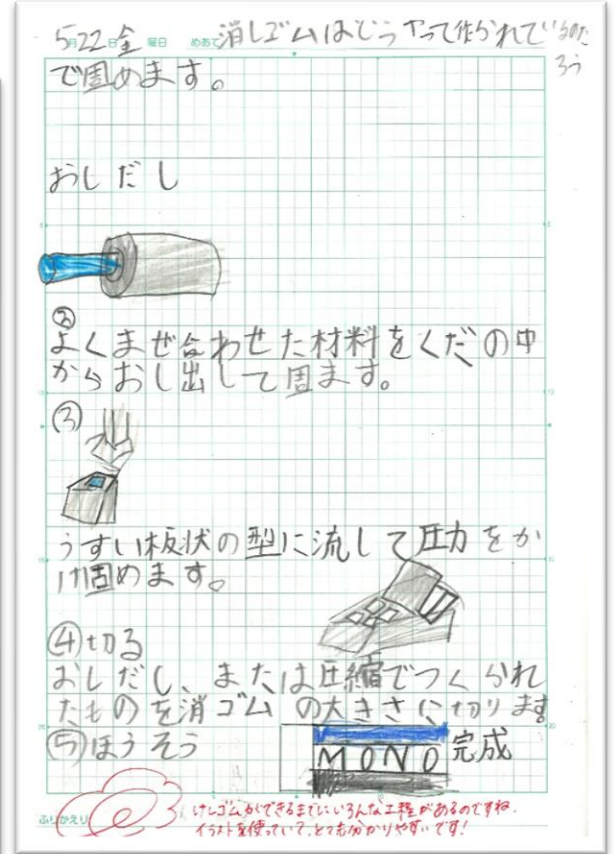 5月22日金曜日 めあて 消しゴムはどうやって作られているのだ
ろう
で固めます。
おしだし
②
よくまぜ合わせた材料をくだの中
からおし出して固ます。
③
うすい板状の型に流して圧力をか
け固めます。
④切る
おしだし、または圧縮でつくられ
たものを消ゴムの大きさに切ります
⑤ほうそう
MONO
完成
ふりかえり
けしゴムができるまでにいろんな工程があるのですね。
イラストを使っていて、とても分かりやすいです!